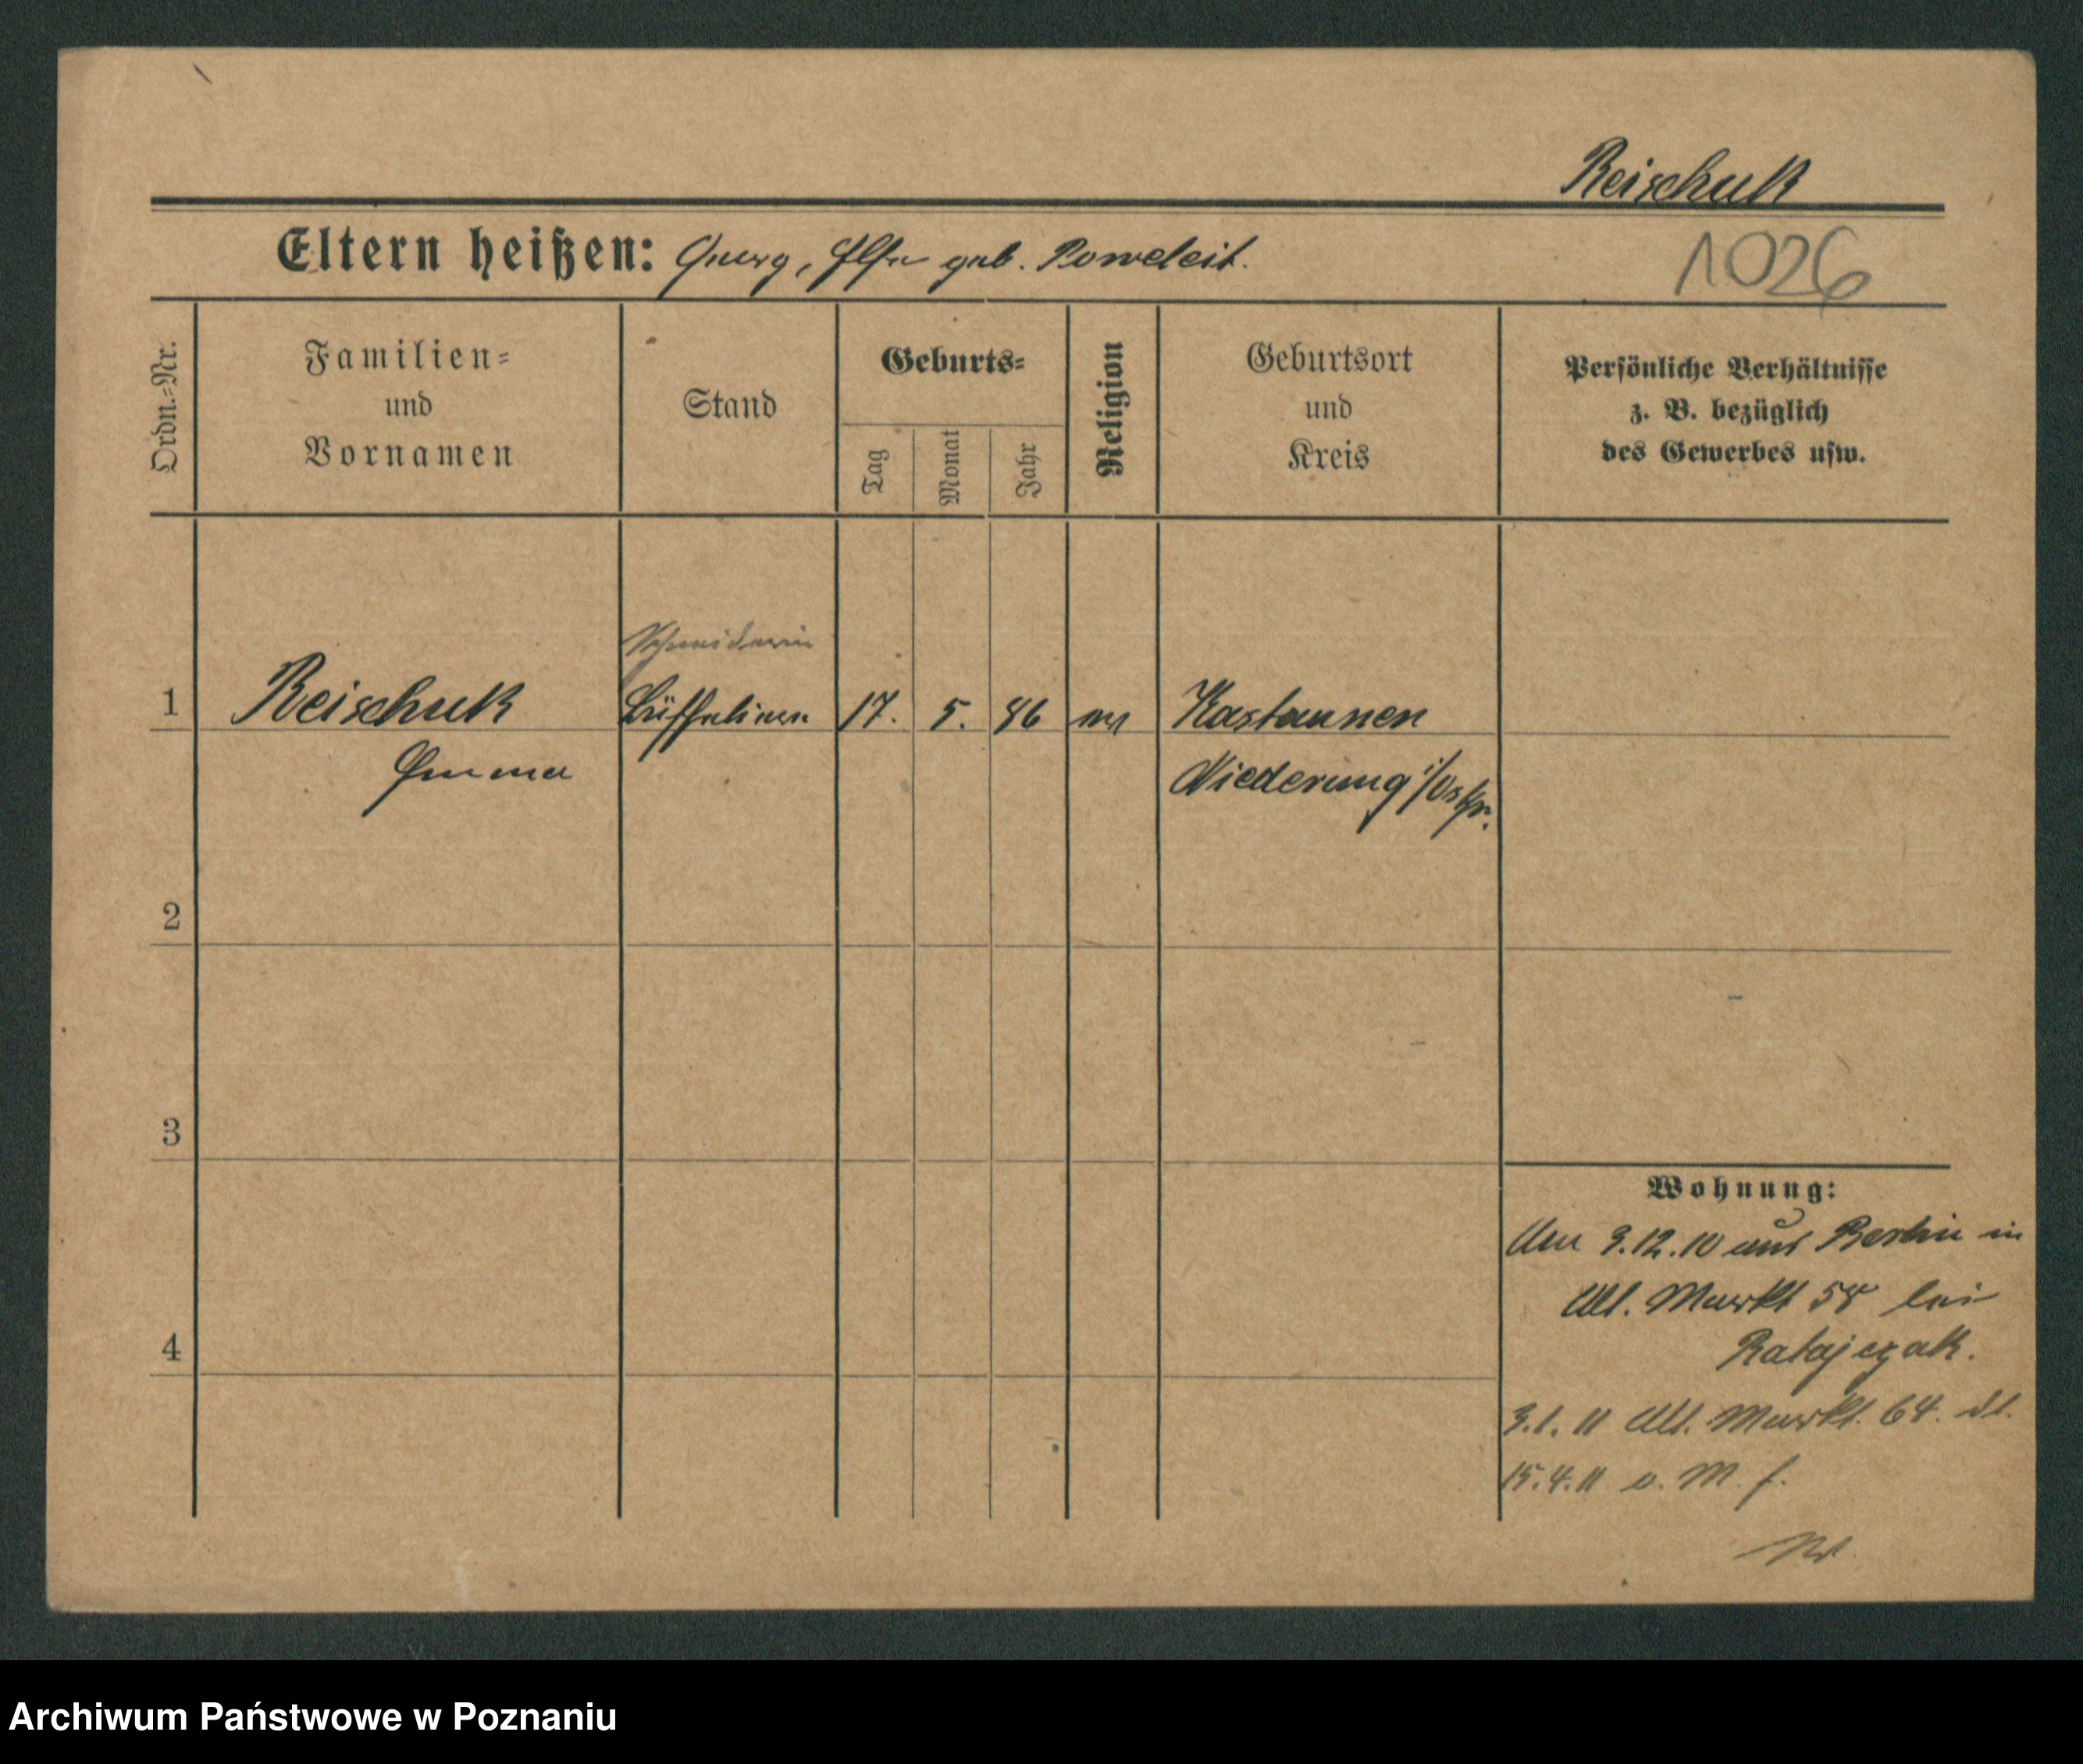 Reischuk
Eltern heißen: Georg, Else geb. Poweleit.
1026
Ordn.-Nr.
Familien-
und
Vornamen
Stand
Geburts-
Tag
Monat
Jahr
Religion
Geburtsort
und
Kreis
Persönliche Verhältnisse
z. B. bezüglich
des Gewerbes usw.
Schneiderin
1 Reischuk Büffetiere 17. 5. 86 ev Kastaunen
Emma Niederung i/Ostpr.
2
3
Wohnung:
Am 3.12.10 aus Berlin in
Alt. Markt 58 bei
4
Ratajczak.
3.1.11 Alt. Markt. 64. dt.
15.4.11 o. M. f.
Archiwum Państwowe w Poznaniu